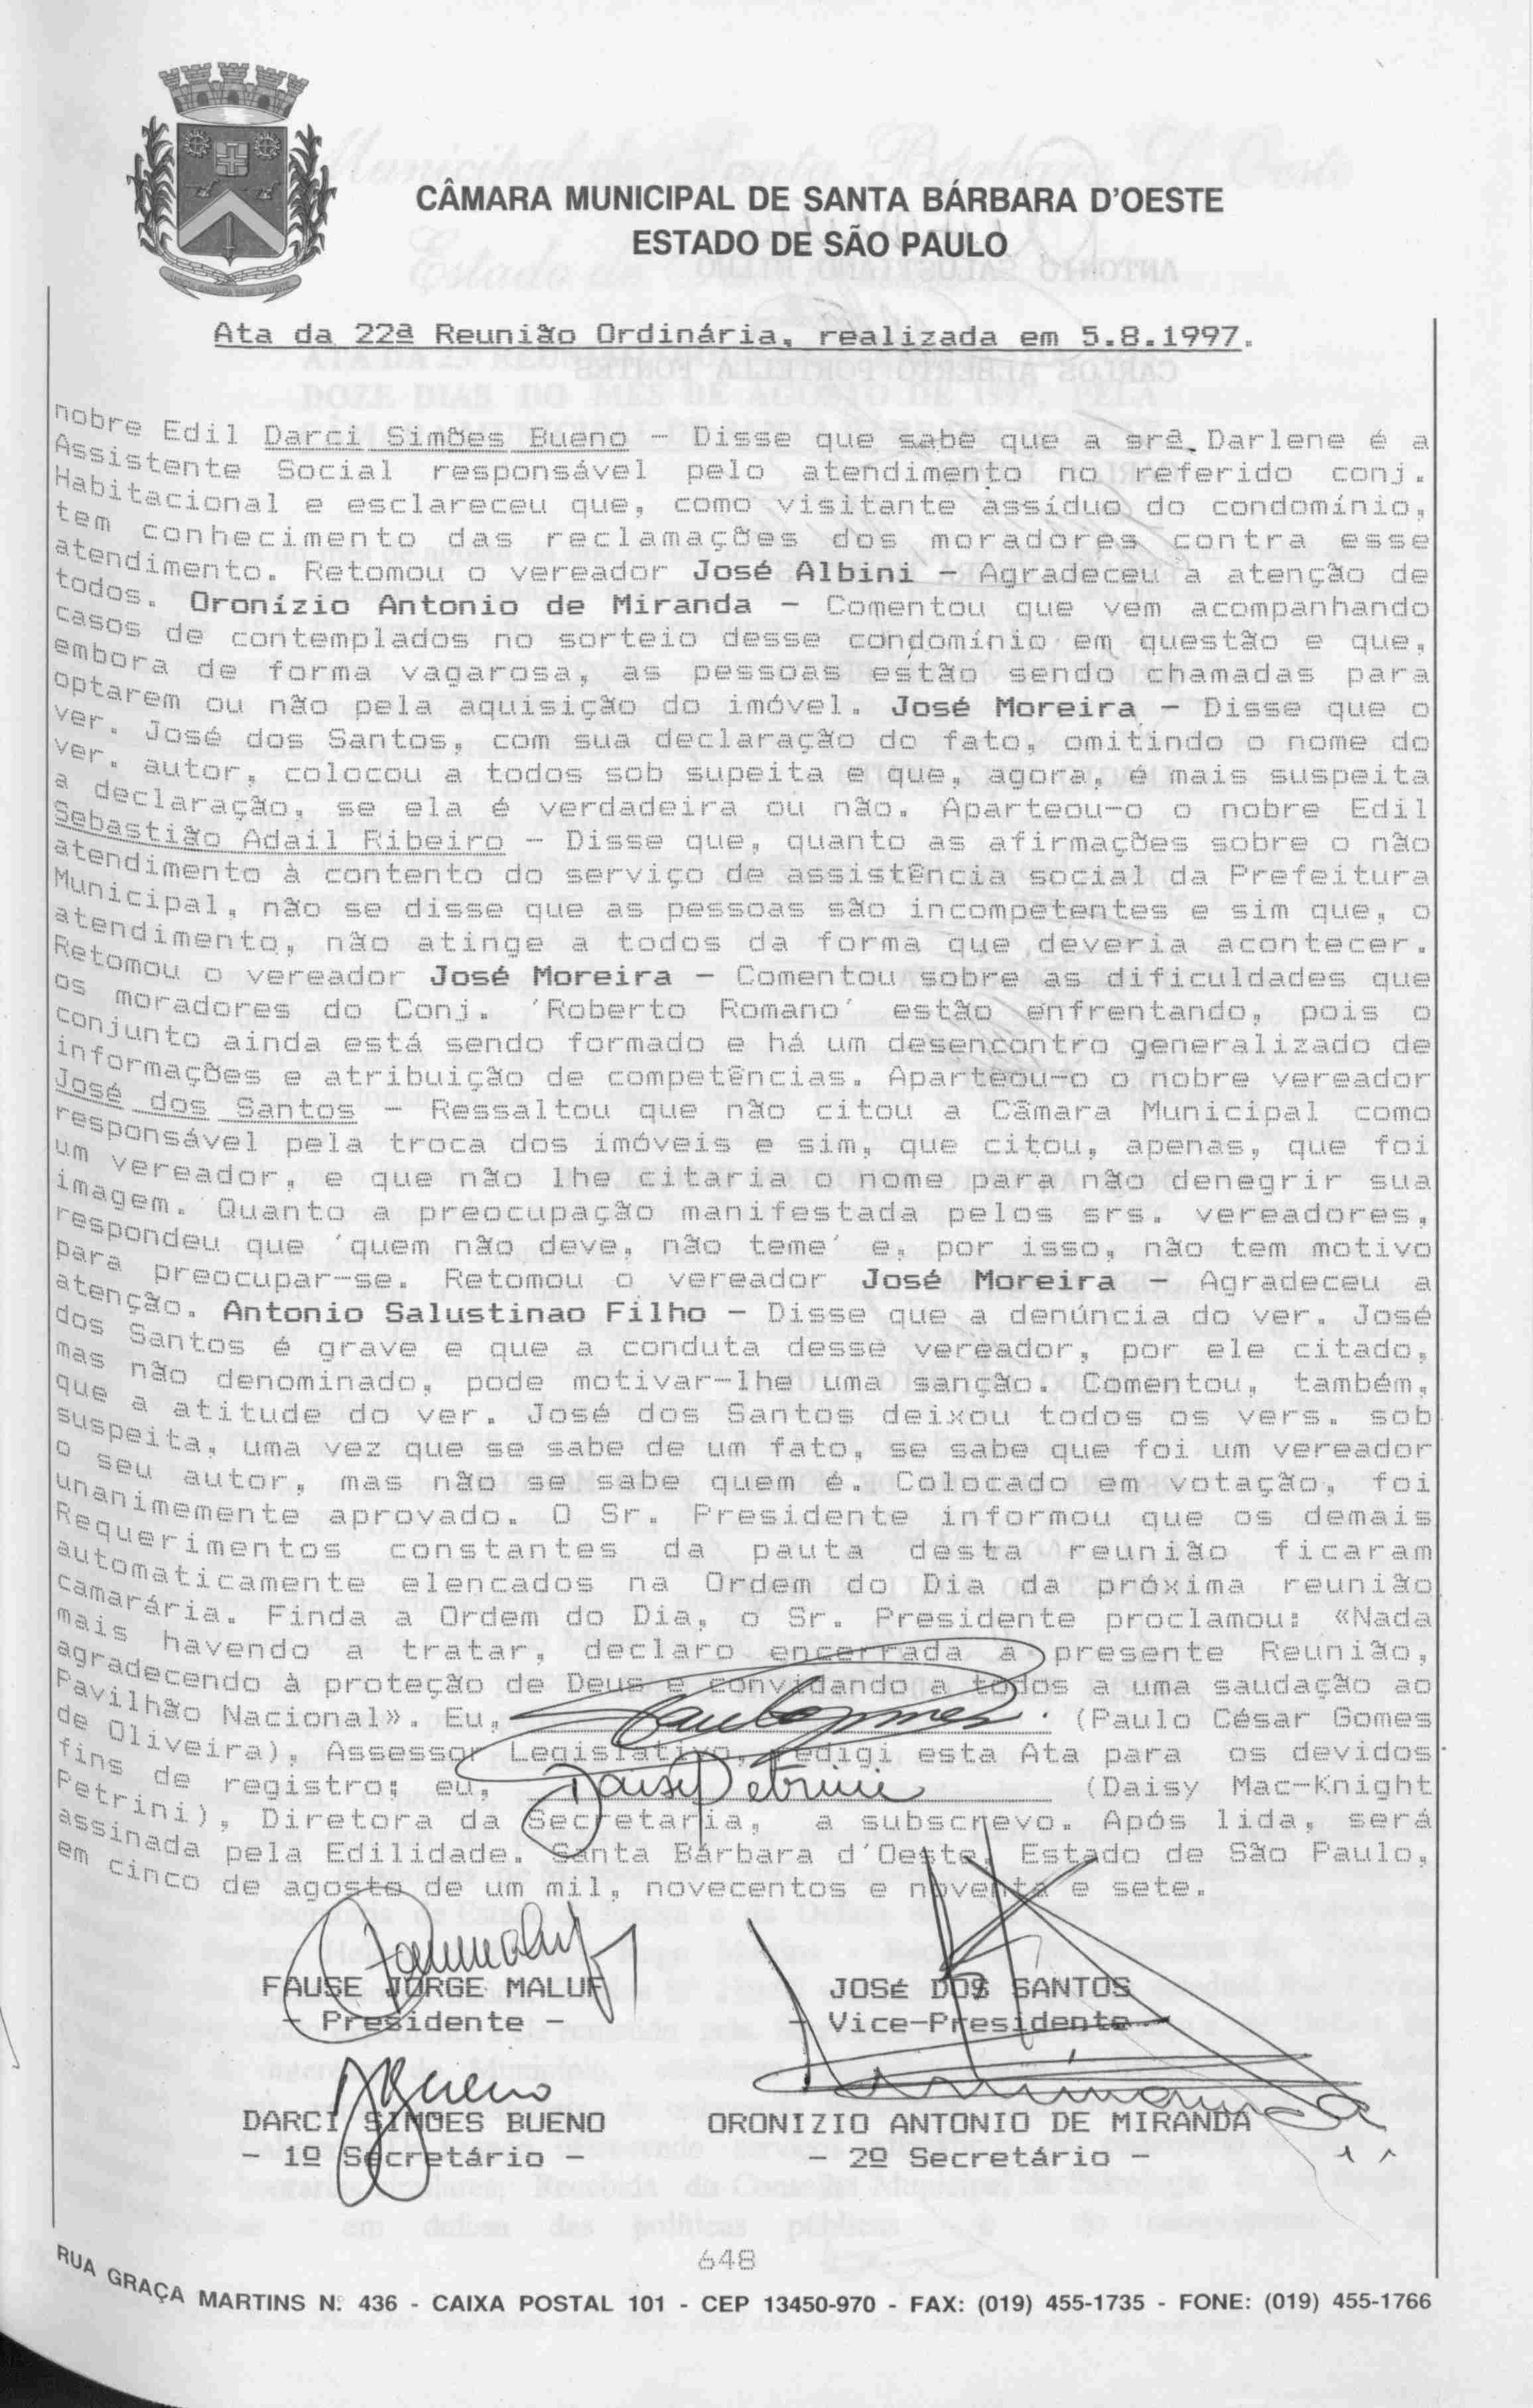 CÂMARA MUNICIPAL DE SANTA BÁRBARA D'OESTE
ESTADO DE SÃO PAULO
Ata da 22ª Reunião Ordinária, realizada em 5.8.1997.
nobre Edil Darci Simões Bueno - Disse que sabe que a srª Darlene é a
Assistente Social responsável pelo atendimento no referido conj.
Habitacional e esclareceu que, como visitante assíduo do condomínio,
tem conhecimento das reclamações dos moradores contra esse
atendimento. Retomou o vereador José Albini - Agradeceu a atenção de
todos. Oronízio Antonio de Miranda - Comentou que vem acompanhando
casos de contemplados no sorteio desse condomínio em questão e que,
embora de forma vagarosa, as pessoas estão sendo chamadas para
optarem ou não pela aquisição do imóvel. José Moreira - Disse que o
ver. José dos Santos, com sua declaração do fato, omitindo o nome do
ver. autor, colocou a todos sob supeita e que, agora, é mais suspeita
a declaração, se ela é verdadeira ou não. Aparteou-o o nobre Edil
Sebastião Adail Ribeiro - Disse que, quanto as afirmações sobre o não
atendimento à contento do serviço de assistência social da Prefeitura
Municipal, não se disse que as pessoas são incompetentes e sim que, o
atendimento, não atinge a todos da forma que deveria acontecer.
Retomou o vereador José Moreira - Comentou sobre as dificuldades que
os moradores do Conj. 'Roberto Romano' estão enfrentando, pois o
conjunto ainda está sendo formado e há um desencontro generalizado de
informações e atribuição de competências. Aparteou-o o nobre vereador
José dos Santos - Ressaltou que não citou a Câmara Municipal como
responsável pela troca dos imóveis e sim, que citou, apenas, que foi
um vereador, e que não lhe citaria o nome para não denegrir sua
imagem. Quanto a preocupação manifestada pelos srs. vereadores,
respondeu que 'quem não deve, não teme' e, por isso, não tem motivo
para preocupar-se. Retomou o vereador José Moreira - Agradeceu a
atenção. Antonio Salustinao Filho - Disse que a denúncia do ver. José
dos Santos é grave e que a conduta desse vereador, por ele citado,
mas não denominado, pode motivar-lhe uma sanção. Comentou, também,
que a atitude do ver. José dos Santos deixou todos os vers. sob
suspeita, uma vez que se sabe de um fato, se sabe que foi um vereador
o seu autor, mas não se sabe quem é. Colocado em votação, foi
unanimemente aprovado. O Sr. Presidente informou que os demais
Requerimentos constantes da pauta desta reunião ficaram
automaticamente elencados na Ordem do Dia da próxima reunião
camarária. Finda a Ordem do Dia, o Sr. Presidente proclamou: «Nada
mais havendo a tratar, declaro encerrada a presente Reunião,
agradecendo à proteção de Deus e convidando a todos a uma saudação ao
Pavilhão Nacional». Eu, (Paulo César Gomes
de Oliveira), Assessor Legislativo, redigi esta Ata para os devidos
fins de registro; eu, Daisy Petrini (Daisy Mac-Knight
Petrini), Diretora da Secretaria, a subscrevo. Após lida, será
assinada pela Edilidade. Santa Bárbara d'Oeste, Estado de São Paulo,
em cinco de agosto de um mil, novecentos e noventa e sete.
FAUSE JORGE MALUF JOSÉ DOS SANTOS
- Presidente - - Vice-Presidente -
DARCI SIMÕES BUENO ORONIZIO ANTONIO DE MIRANDA
- 1º Secretário - - 2º Secretário -
648
RUA GRAÇA MARTINS N.º 436 - CAIXA POSTAL 101 - CEP 13450-970 - FAX: (019) 455-1735 - FONE: (019) 455-1766